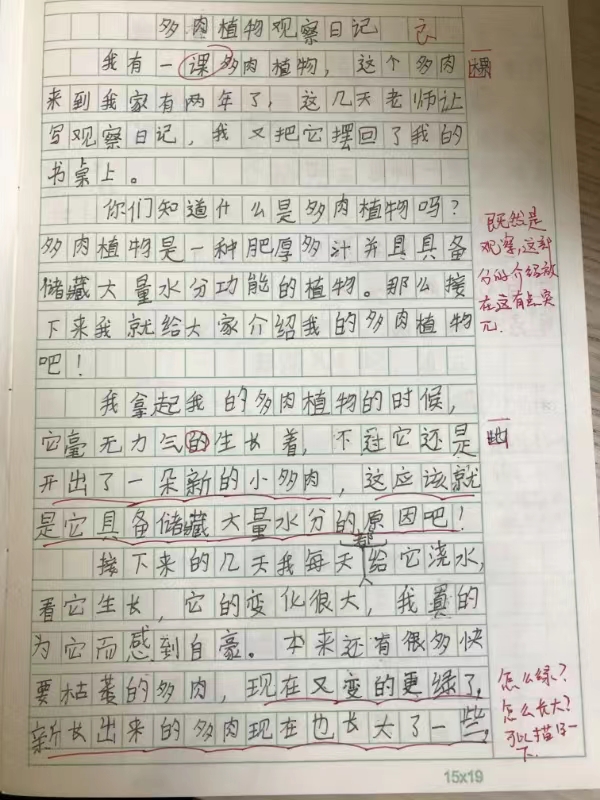 多肉植物观察日记 良
我有一课多肉植物，这个多肉
棵
来到我家有两年了，这几天老师让
写观察日记，我又把它摆回了我的
书桌上。
你们知道什么是多肉植物吗？
多肉植物是一种肥厚多汁并且具备
储藏大量水分功能的植物。那么接
下来我就给大家介绍我的多肉植物
吧！
既然是
观察，这部
分的介绍放
在这有点突
兀.
我拿起我的多肉植物的时候，
它毫无力气的生长着，不过它还是
地
开出了一朵新的小多肉，这应该就
是它具备储藏大量水分的原因吧！
接下来的几天我每天都给它浇水，
看它生长，它的变化很大，我真的
为它而感到自豪。本来还有很多快
要枯萎的多肉，现在又变的更绿了，
新长出来的多肉现在也长大了一些，
怎么绿？
怎么长大？
可以描写一
下.
15x19